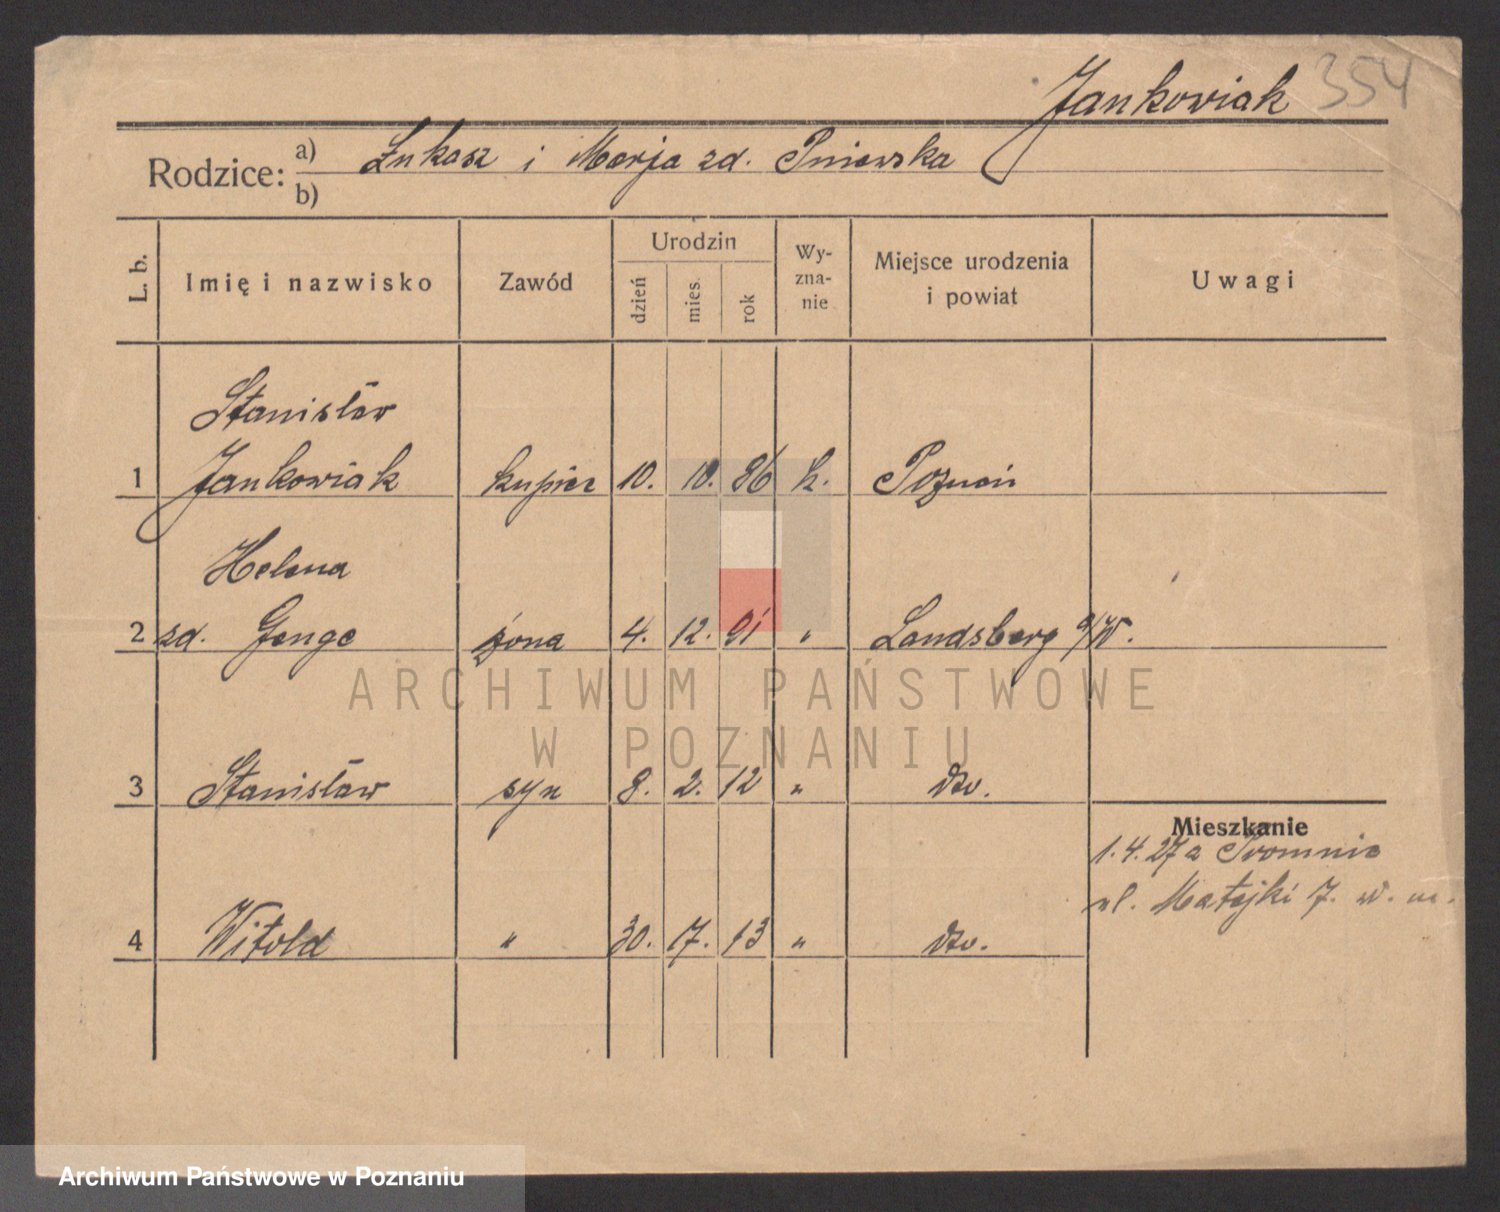 Jankowiak 354
Rodzice: a) Łukasz i Marja zd. Pniewska
b)
L. b. Imię i nazwisko Zawód Urodzin dzień mies. rok Wyznanie Miejsce urodzenia i powiat Uwagi
Stanisław
1 Jankowiak kupiec 10. 10. 86 k. Poznań
Helena
2 zd. Genge żona 4. 12. 91 " Landsberg a/W.
3 Stanisław syn 8. 2. 12 " dto.
Mieszkanie
1.4.27 z
ul. Matejki 7. w. m.
4 Witold " 30. 7. 13 " dto.
ARCHIWUM PAŃSTWOWE
W POZNANIU
Archiwum Państwowe w Poznaniu